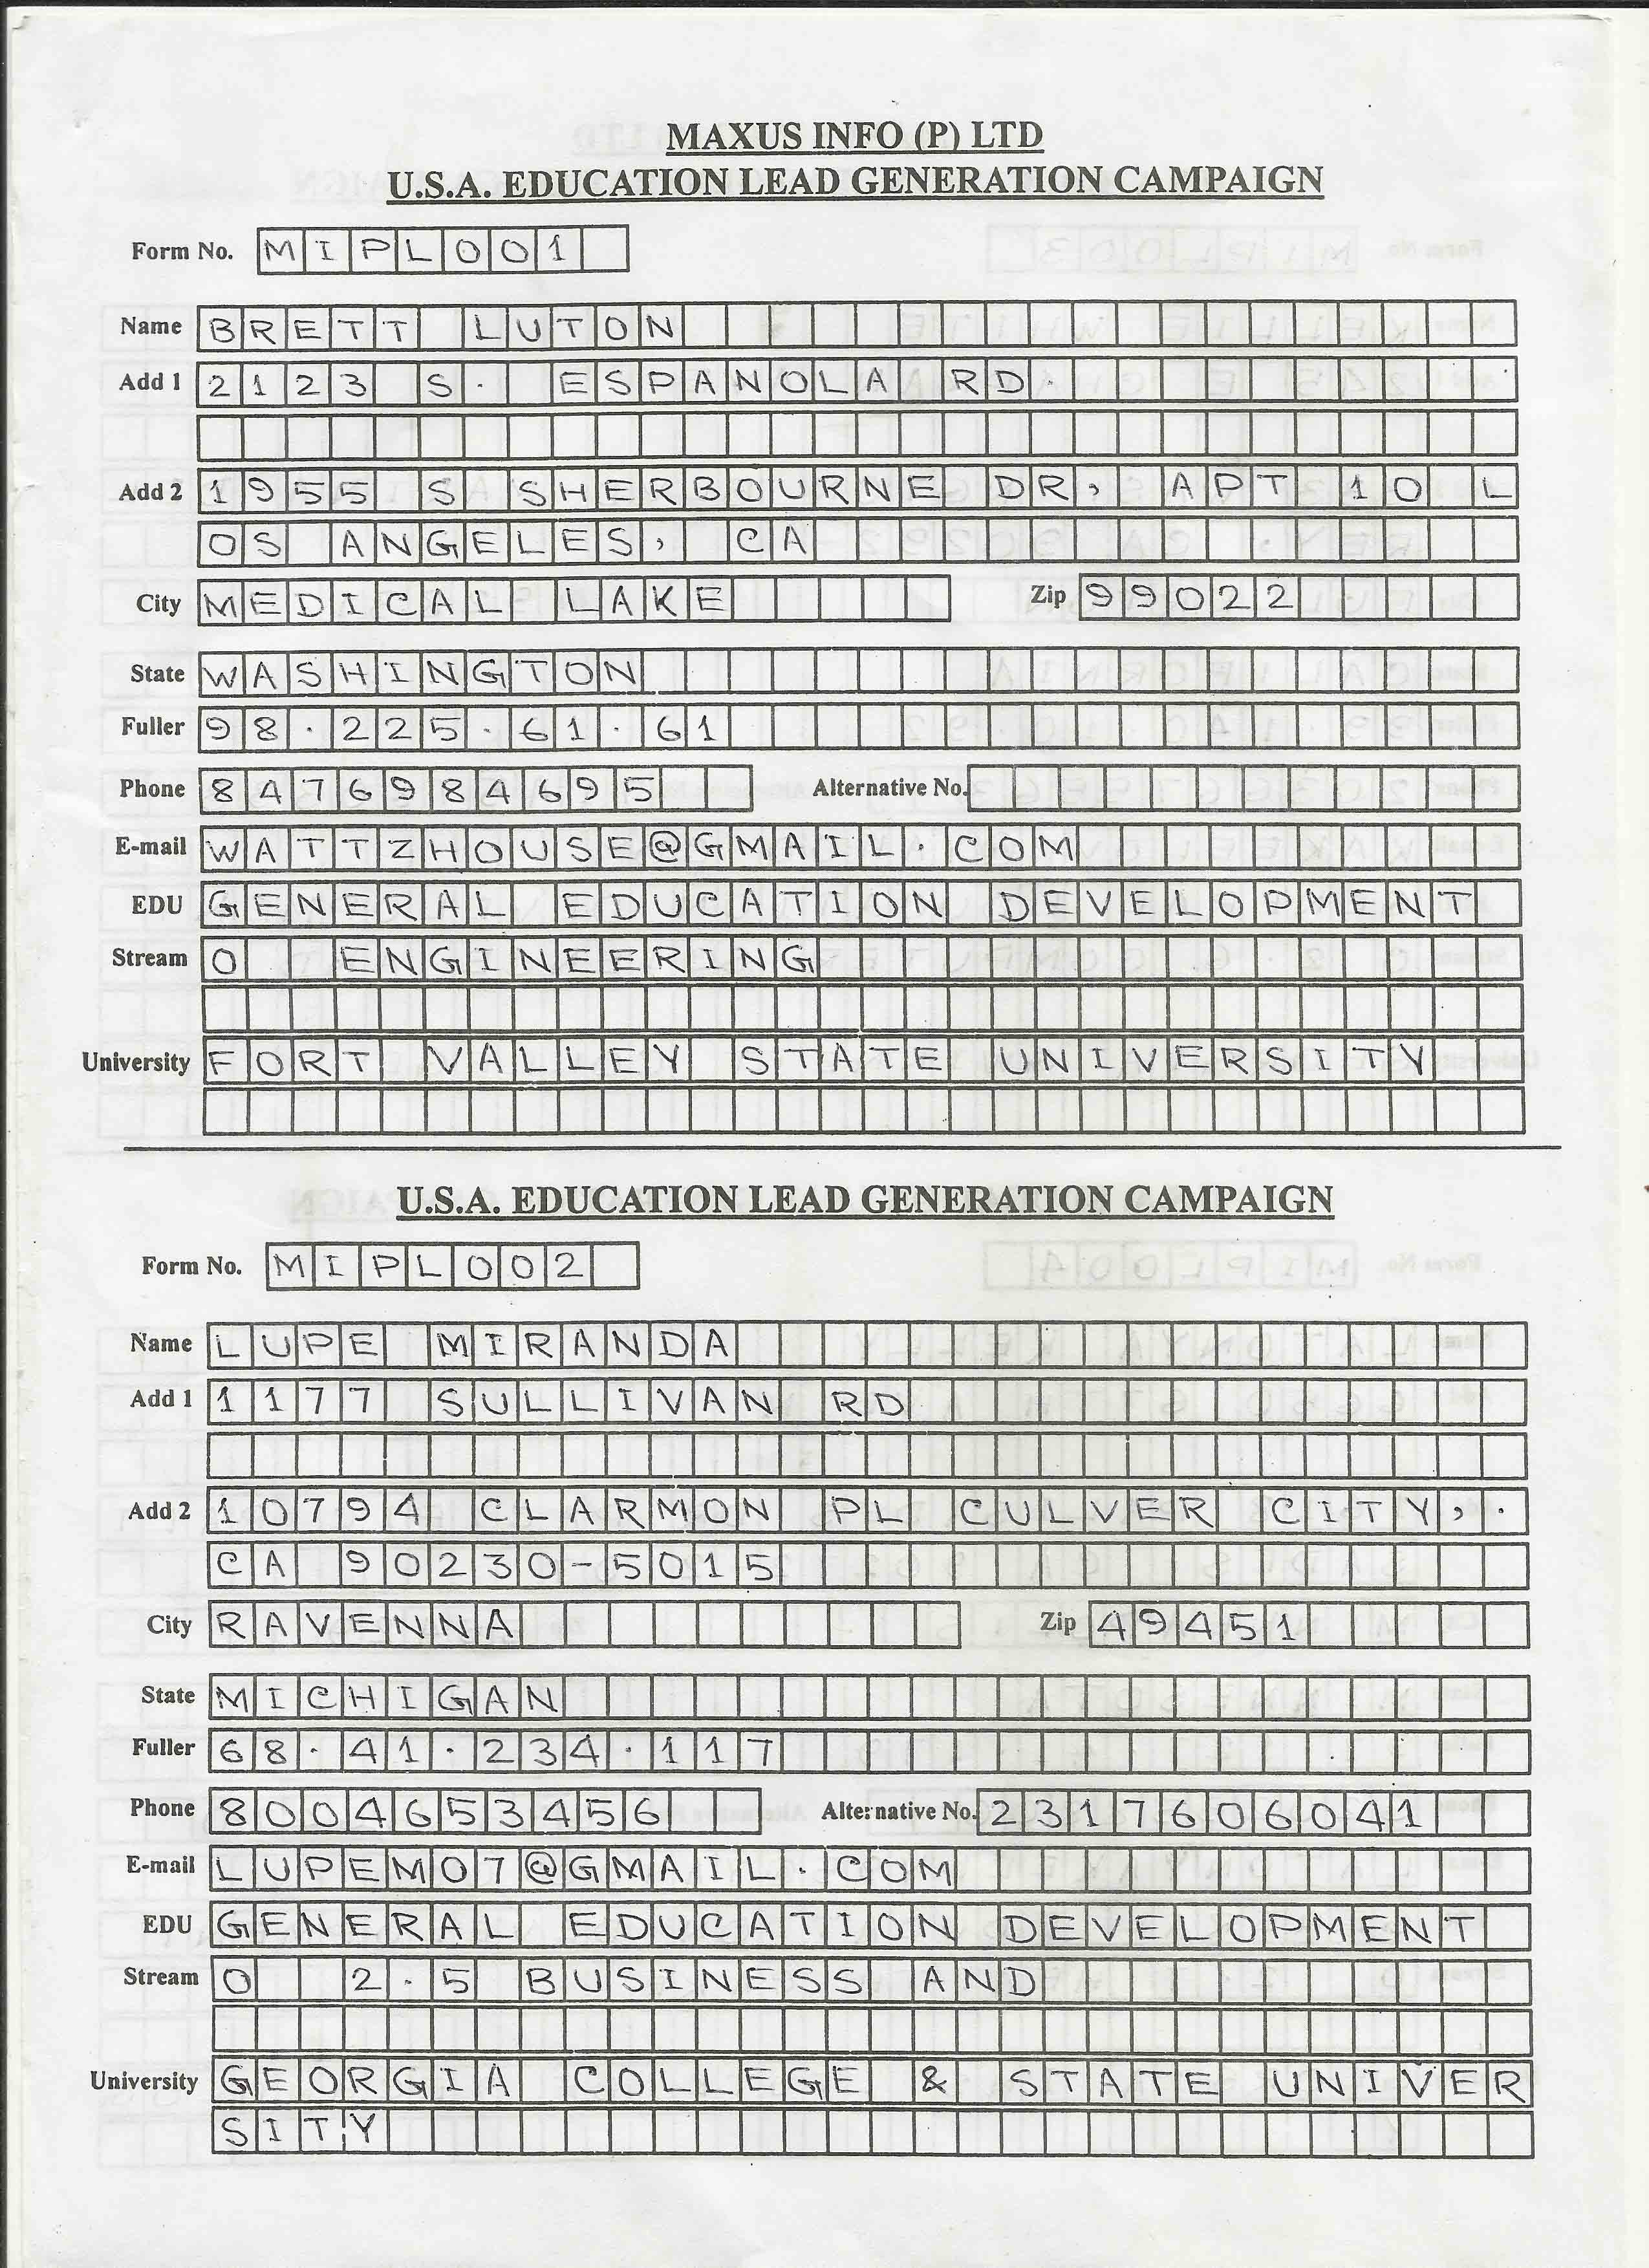 MAXUS INFO (P) LTD
U.S.A. EDUCATION LEAD GENERATION CAMPAIGN
Form No. MIPL001
Name BRETT LUTON
Add 1 2123 S. ESPANOLA RD.
Add 2 1955 S SHERBOURNE DR, APT 10 L
OS ANGELES, CA
City MEDICAL LAKE Zip 99022
State WASHINGTON
Fuller 98.225.61.61
Phone 8476984695 Alternative No.
E-mail WATTZHOUSE@GMAIL.COM
EDU GENERAL EDUCATION DEVELOPMENT
Stream 0 ENGINEERING
University FORT VALLEY STATE UNIVERSITY
U.S.A. EDUCATION LEAD GENERATION CAMPAIGN
Form No. MIPL002
Name LUPE MIRANDA
Add 1 1177 SULLIVAN RD
Add 2 10794 CLARMON PL CULVER CITY, .
CA 90230-5015
City RAVENNA Zip 49451
State MICHIGAN
Fuller 68.41.234.117
Phone 8004653456 Alternative No. 2317606041
E-mail LUPEM07@GMAIL.COM
EDU GENERAL EDUCATION DEVELOPMENT
Stream 0 2.5 BUSINESS AND
University GEORGIA COLLEGE & STATE UNIVER
SITY